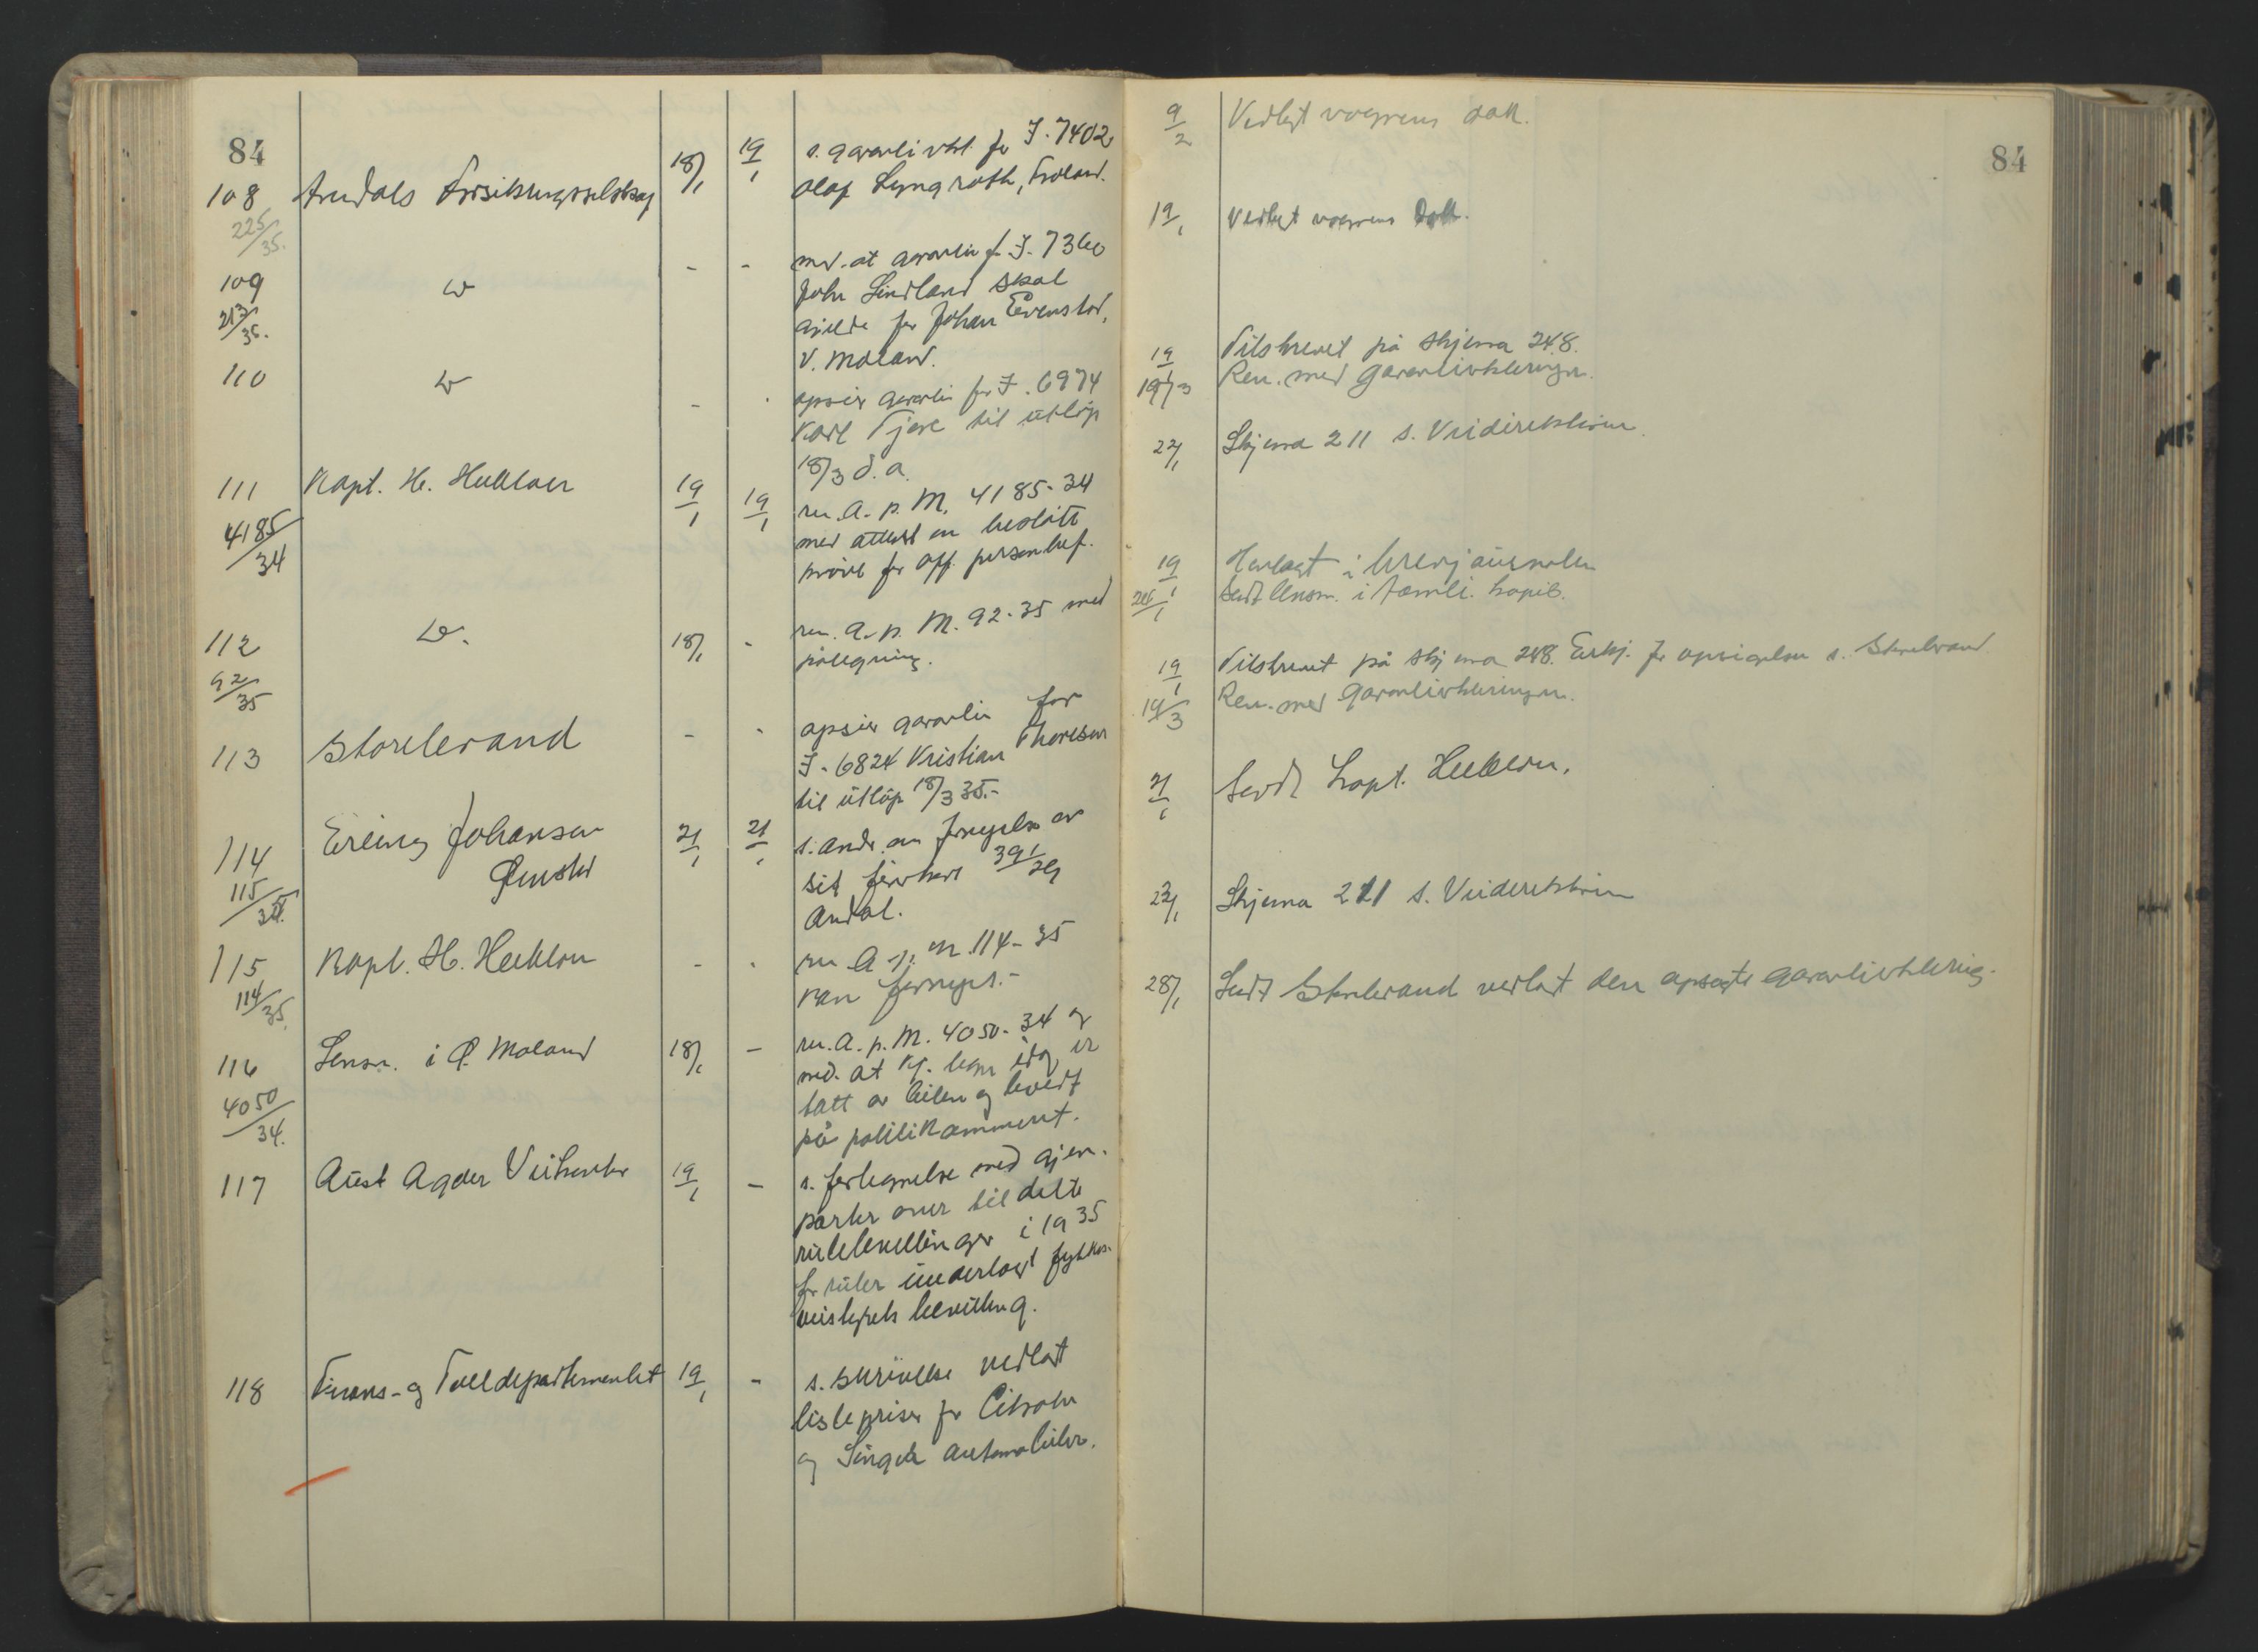 84
108 Arendals Forsikringsselskap 18/1 19/1 s. garantierkl. for I-7402
225/35. Olaf Lyngroth, Froland.
109 med. at garantien f. I. 7360
213/35. John Lindland skal
gjelde for Johan Evenstad,
Ø. Moland.
110 opsier garantien for I. 6974
Karl Tjore til utløp
18/3 d.a.
111 Kapt. H. Heiklom 19/1 19/1 ret. A. p. M. 4185-34
4185/34 med attest om bestått
prøve for off. personbef.
112 18/1 - ret. A. p. M. 92-35 med
92/35 påtegning.
113 Storebrand - - opsier garantien for
I-6824 Kristian Thoresen
til utløp 18/3 35.-
114 Erling Johansen 21/1 21/1 s. andr. om fornyelse av
115/35. sit førerkort 391/29
Arendal.
115 Kapt. H. Heiklom - - ret. A. p. M. 114-35
114/35. kan fornyes.-
116 Lensm. i Ø. Moland 18/1 - ret. A. p. M. 4050-34 og
4050/34. med. at kj. tegn idag er
tatt av bilen og levert
på politikammeret.
117 Aust Agder Veikontor 19/1 - s. fortegnelse med gjen-
parter over tildelte
rutebevillinger i 1935
for ruter underlagt fylkes-
veistyrets bevilling.
118 Finans- og Tolldepartementet 19/1 - s. skrivelse vedlagt
listepriser for Citroën
og Singer automobiler.
84
9/2 Vedlagt vognens dok.
19/1 Vedlagt vognens dok.
19/1 Tilskrevet på skjema 248.
19/3 Ret. med garantierklæringen.
22/1 Skjema 211 s. Veidirektøren.
19/1 Henlagt i brevjournalen
24/1 Sendt lensm. i Åmli.
19/1 Tilskrevet på skjema 248. Erkj. for opsigelsen s. Storebrand.
19/3 Ret. med garantierklæringen.
21/1 Sendt kapt. Heiklom.
23/1 Skjema 211 s. Veidirektøren
28/1 Sendt Storebrand vedlagt den opsagte garantierklæring.